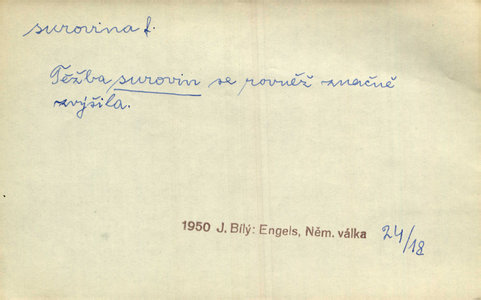 surovina f.
Těžba surovin se rovněž značně
zvýšila.
1950 J. Bílý: Engels, Něm. válka 24/18